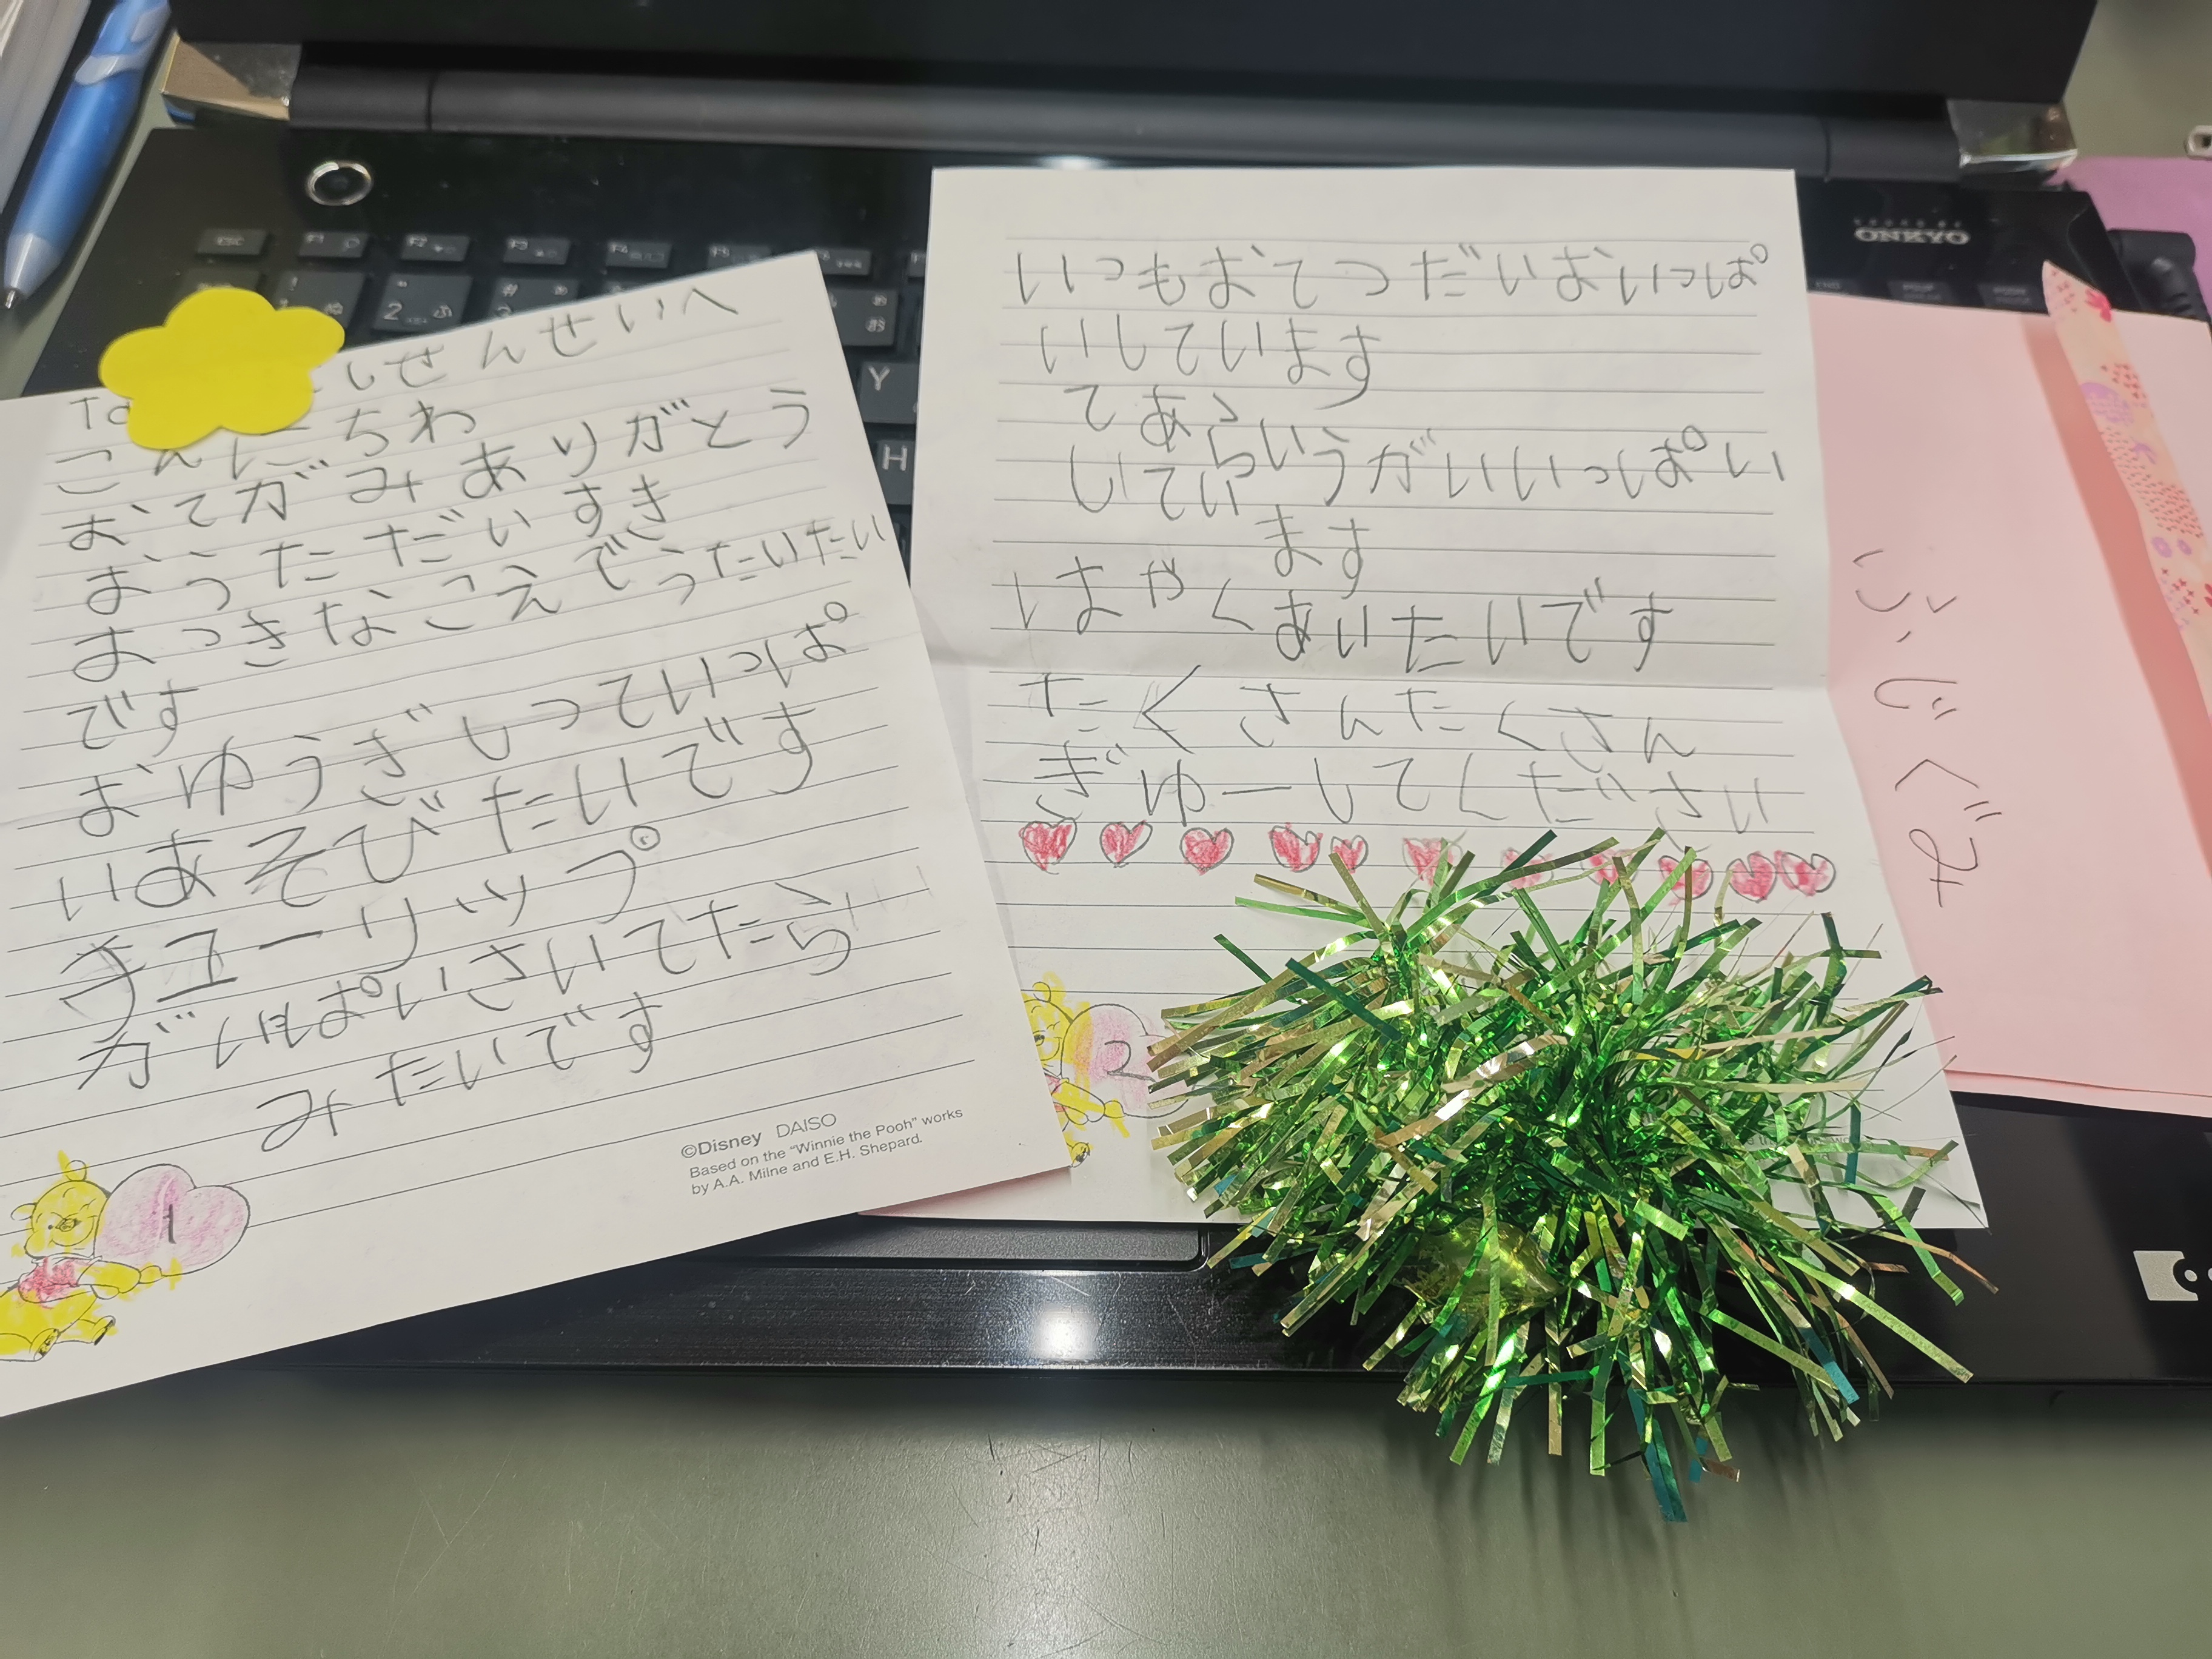 To しせんせいへ
こんにちわ
おてがみありがとう
おうただだいすき
おっきなこえでうたいたい
です
おゆうぎしっていっぱ
いあそびたいです
チューリップ
がいぱいさいてたら
みたいです
1
©Disney DAISO
Based on the "Winnie the Pooh" works
by A.A. Milne and E.H. Shepard.
いつもおてつだいおいっぱ
いしています
てあらいうがいいっぱい
してい
ます
はやくあいたいです
たくさんたくさん
ぎゆーしてください
2
ふじぐみ
ONKYO
Y
H